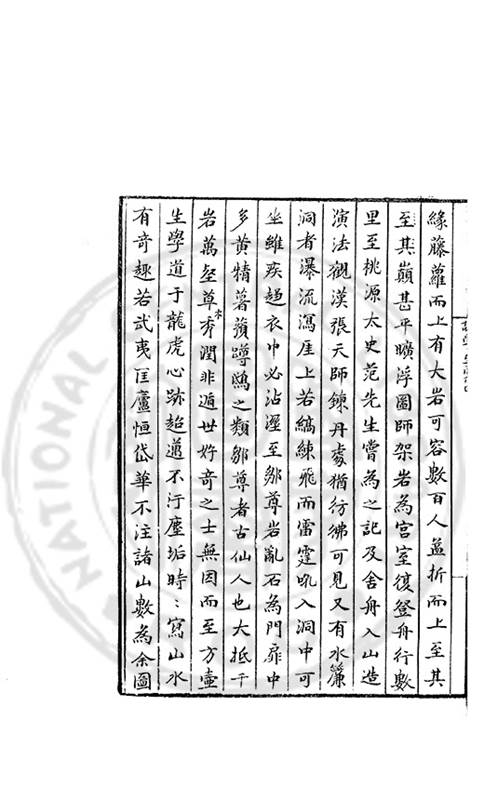 緣藤蘿而上有大岩可容數百人盖折而上至其
至其巔甚平曠浮圖師架岩為宮室復登舟行數
里至桃源太史范先生嘗為之記及舍舟入山造
演法觀漢張天師鍊丹處猶彷彿可見又有水簾
洞者瀑流瀉厓上若縞練飛而雷霆吼入洞中可
坐雖疾趨衣巾必沾溼至鄒尊岩亂石為門扉中
多黄精薯蕷蹲鴟之類鄒尊者古仙人也大抵千
岩萬壑草木秀潤非遁世好奇之士無因而至方壺
生學道于龍虎心跡超邁不汙塵垢時〻寫山水
有奇趣若武夷匡廬恒岱華不注諸山數為余圖
NATIONAL